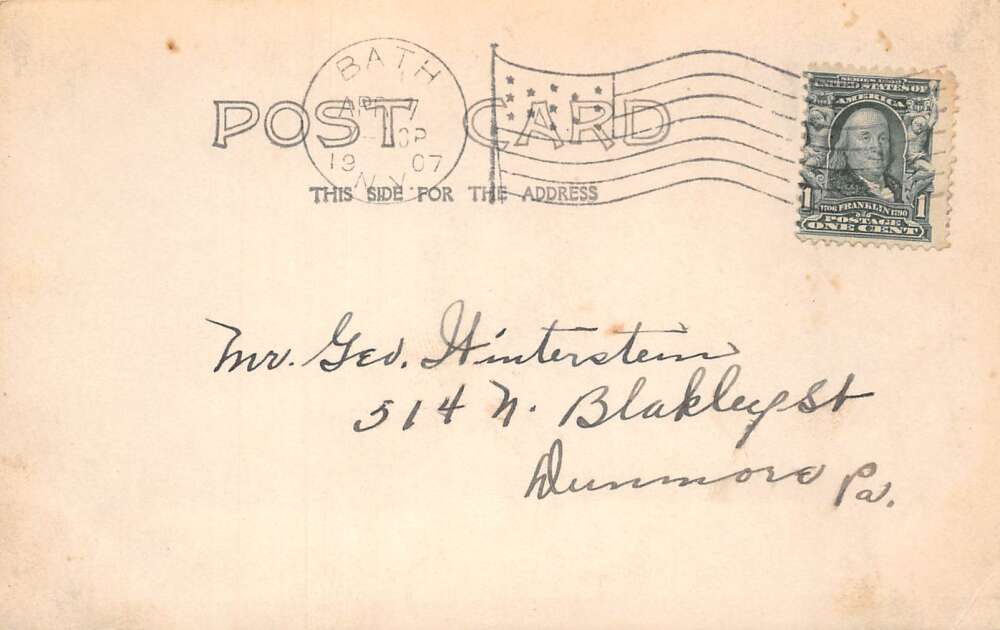 BATH
APR 7
19 07
N.Y.
POST CARD
THIS SIDE FOR THE ADDRESS
SERIES 1902
UNITED STATES OF
AMERICA
1 1706 FRANKLIN 1790 1
POSTAGE
ONE CENT
Mr. Geo. Winterstein
514 N. Blakley St
Dunmore Pa.